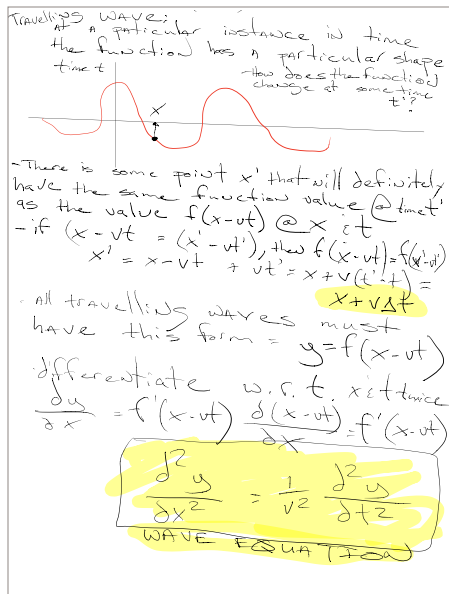 Travelling wave:
at a paticular instance in time
the function has a particular shape
time t
- How does the function
change at some time
t'?
x
- There is some point x' that will definitely
have the same function value @ time t'
as the value f(x-vt) @ x & t
- if (x - vt = (x' - vt'), then f(x-vt) = f(x'-vt')
x' = x - vt + vt' = x + v(t' - t) =
x + vΔt
- All travelling waves must
have this form = y = f(x-vt)
differentiate w.r.t. x & t twice
∂y/∂x = f'(x-vt) ∂(x-vt)/∂x = f'(x-vt)
∂²y/∂x² = 1/v² ∂²y/∂t²
WAVE EQUATION